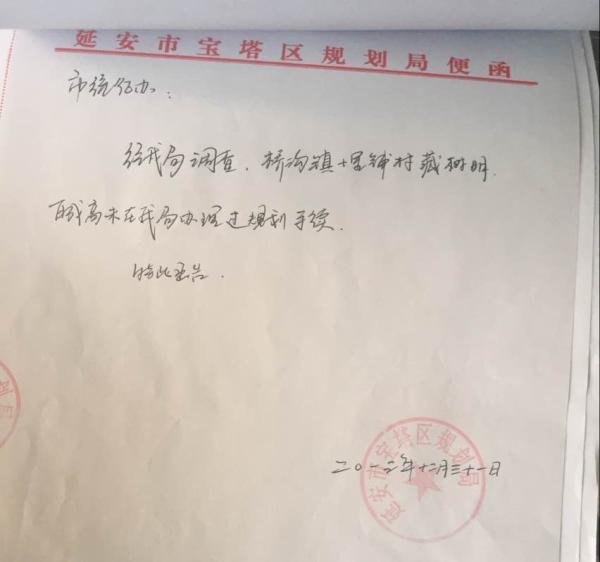 延安市宝塔区规划局便函
市统征办：
经我局调查，桥沟镇十里铺村藏树明
高未在我局办理过规划手续。
特此函告。
二〇一三年十二月三十一日
延安市宝塔区规划局
划局